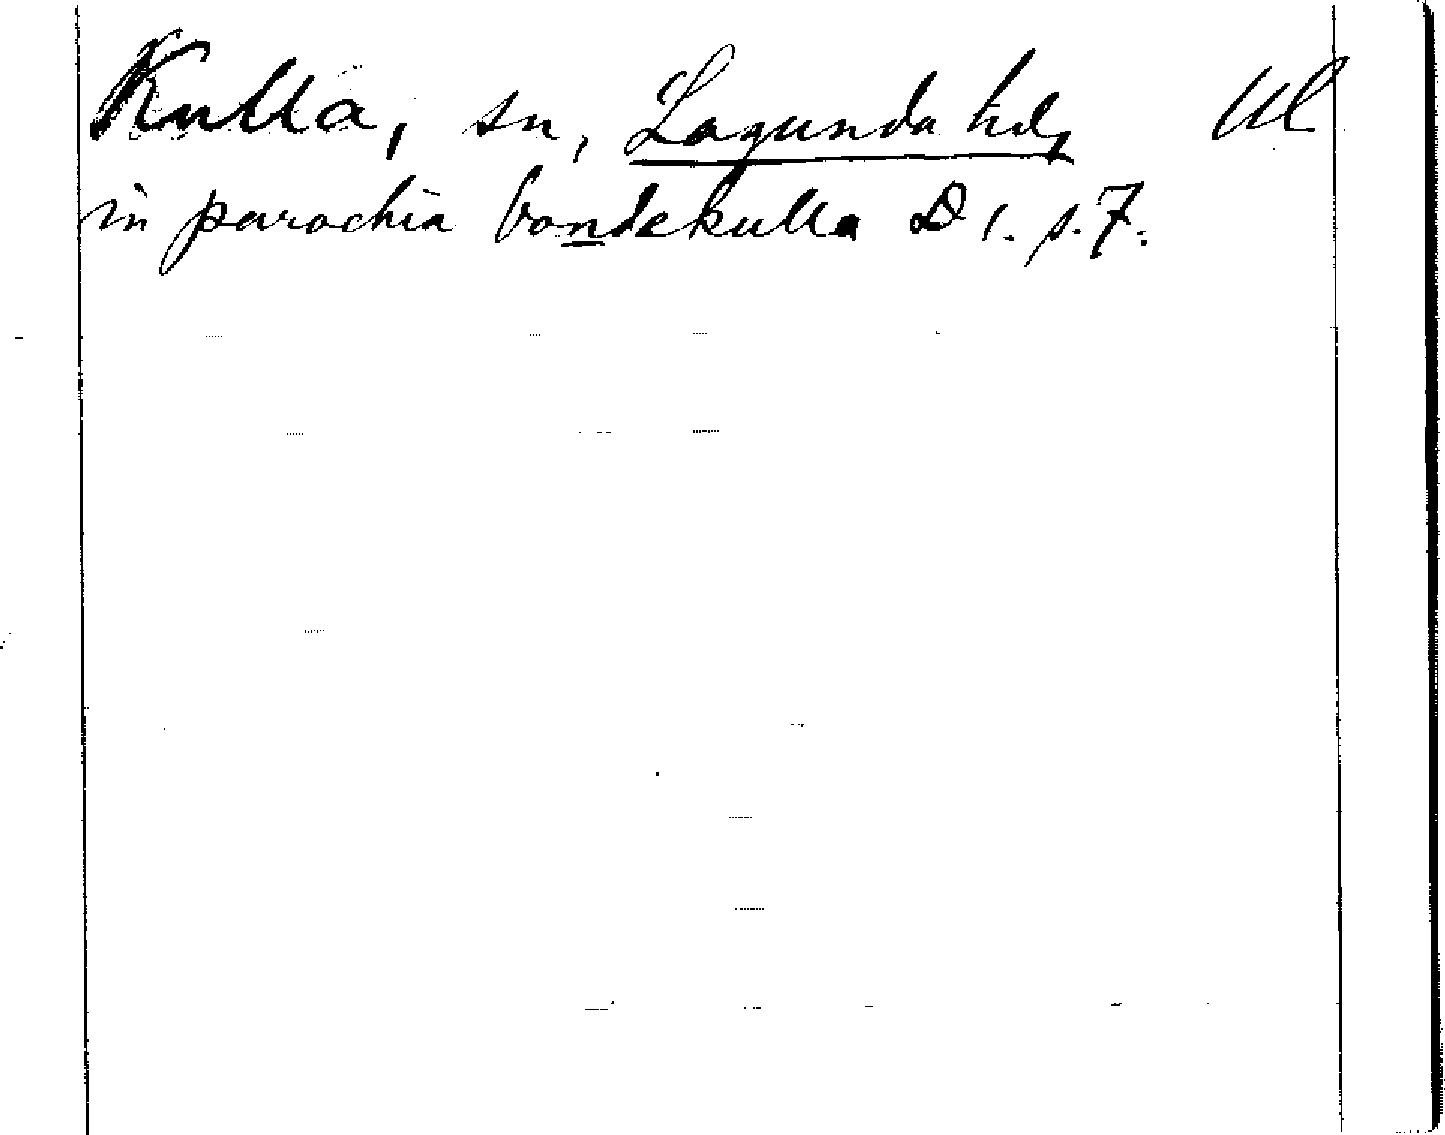 Kulla, sn, Lagunda hd, Ul
in parochia bondekulla D 1. s. 7.